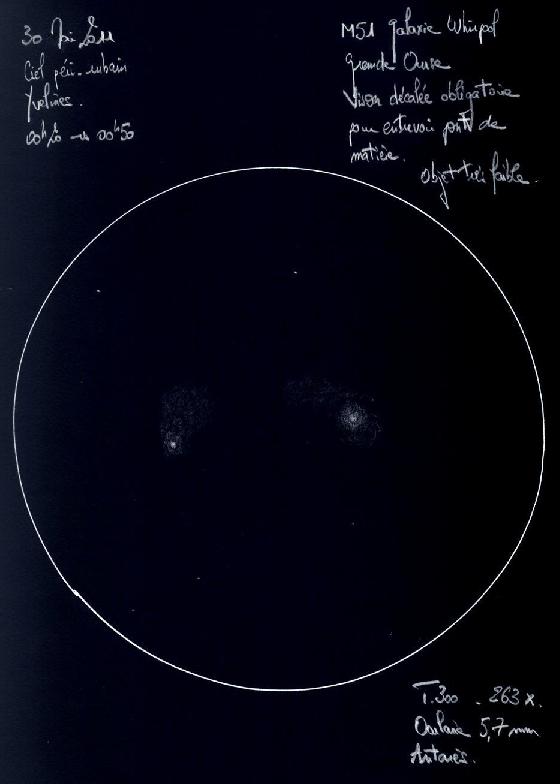 30 Mai 2011
Ciel péri-urbain
Yvelines.
00h20 → 00h50
M51 galaxie Whirpol
grande Ourse
Vision décalée obligatoire
pour entrevoir pont de
matière.
objet très faible.
T.300 - 263x.
Oculaire 5,7 mm
Antarès.